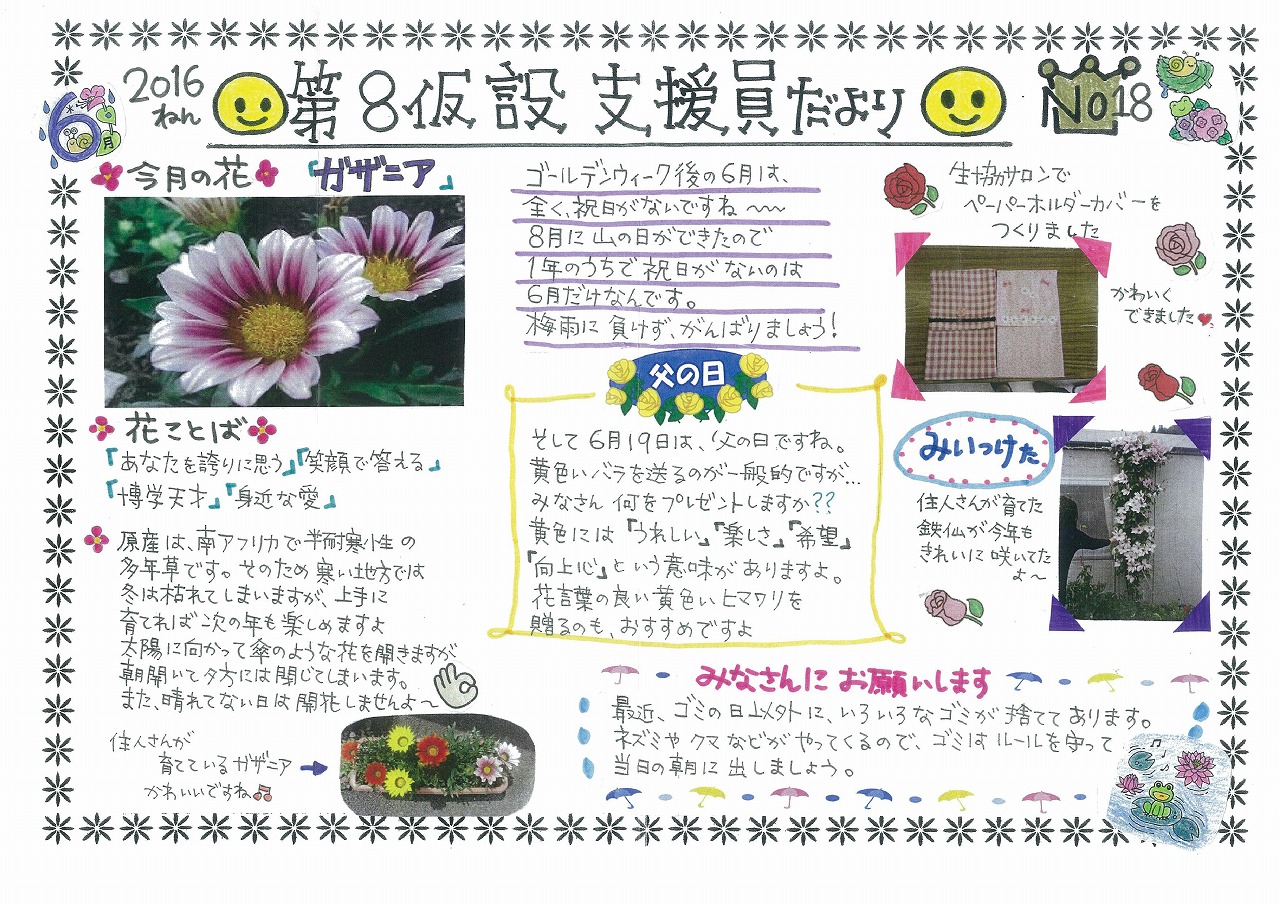 6月
2016
ねん
第8仮設 支援員だより
No18
今月の花 『ガザニア』
花ことば
『あなたを誇りに思う』『笑顔で答える』
『博学天才』『身近な愛』
原産は、南アフリカで半耐寒性の
多年草です。そのため寒い地方では
冬は枯れてしまいますが、上手に
育てれば次の年も楽しめますよ
太陽に向かって傘のような花を開きますが
朝開いて夕方には閉じてしまいます。
また、晴れてない日は開花しませんよ〜
住人さんが
育てているガザニア
かわいいですね♫
ゴールデンウィーク後の6月は、
全く、祝日がないですね〜〜
8月に山の日ができたので
1年のうちで祝日がないのは
6月だけなんです。
梅雨に負けず、がんばりましょう!
父の日
そして6月19日は、父の日ですね。
黄色いバラを送るのが一般的ですが…
みなさん何をプレゼントしますか??
黄色には『うれしい』『楽しさ』『希望』
『向上心』という意味がありますよ。
花言葉の良い黄色いヒマワリを
贈るのも、おすすめですよ
生協サロンで
ペーパーホルダーカバーを
つくりました
かわいく
できました♥
みいつけた
住人さんが育てた
鉄仙が今年も
きれいに咲いてた
よ〜
みなさんにお願いします
最近、ゴミの日以外に、いろいろなゴミが捨ててあります。
ネズミやクマなどがやってくるので、ゴミはルールを守って
当日の朝に出しましょう。